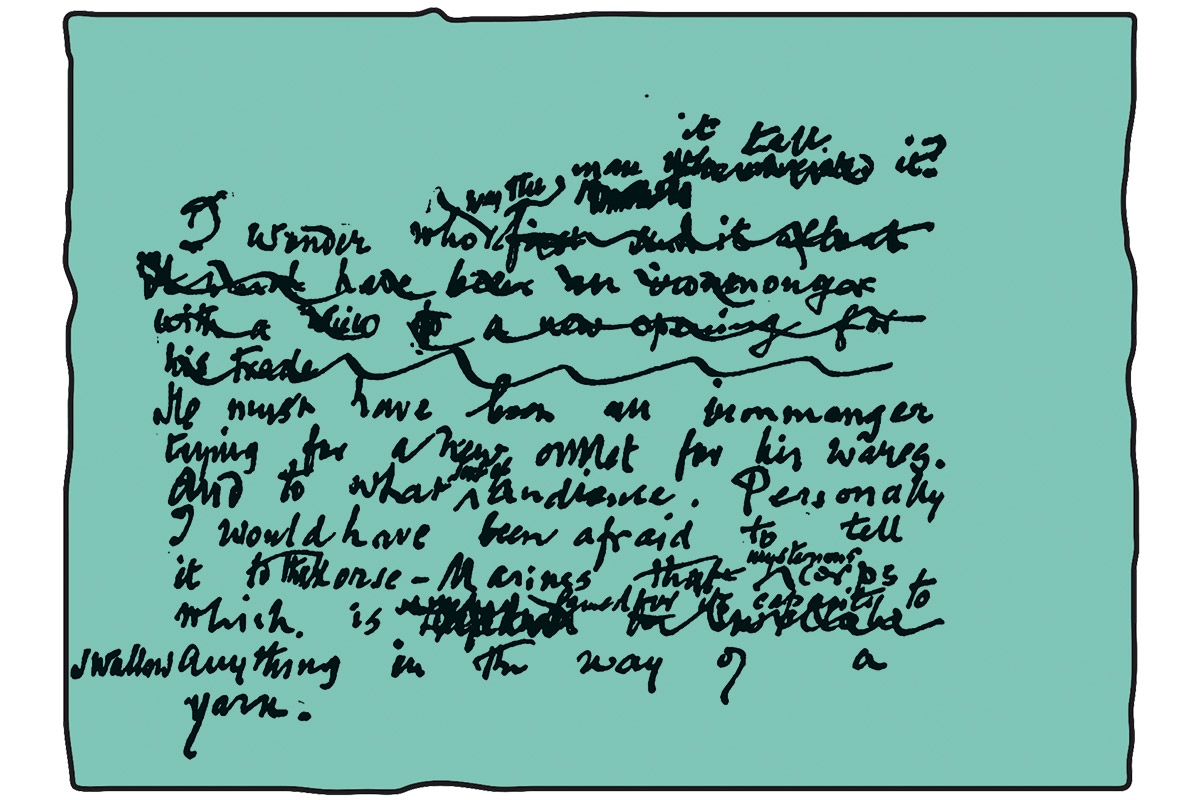 it tall
was the man it?
I wonder who first
have been an ironmonger
with a view to a new opening for
his trade
He must have been an ironmonger
trying for a new outlet for his wares.
And to what sort of audience. Personally
I would have been afraid to tell
it to the Horse-Marines that mysterious corps
which is famed for its capacity to
swallow anything in the way of a
yarn.